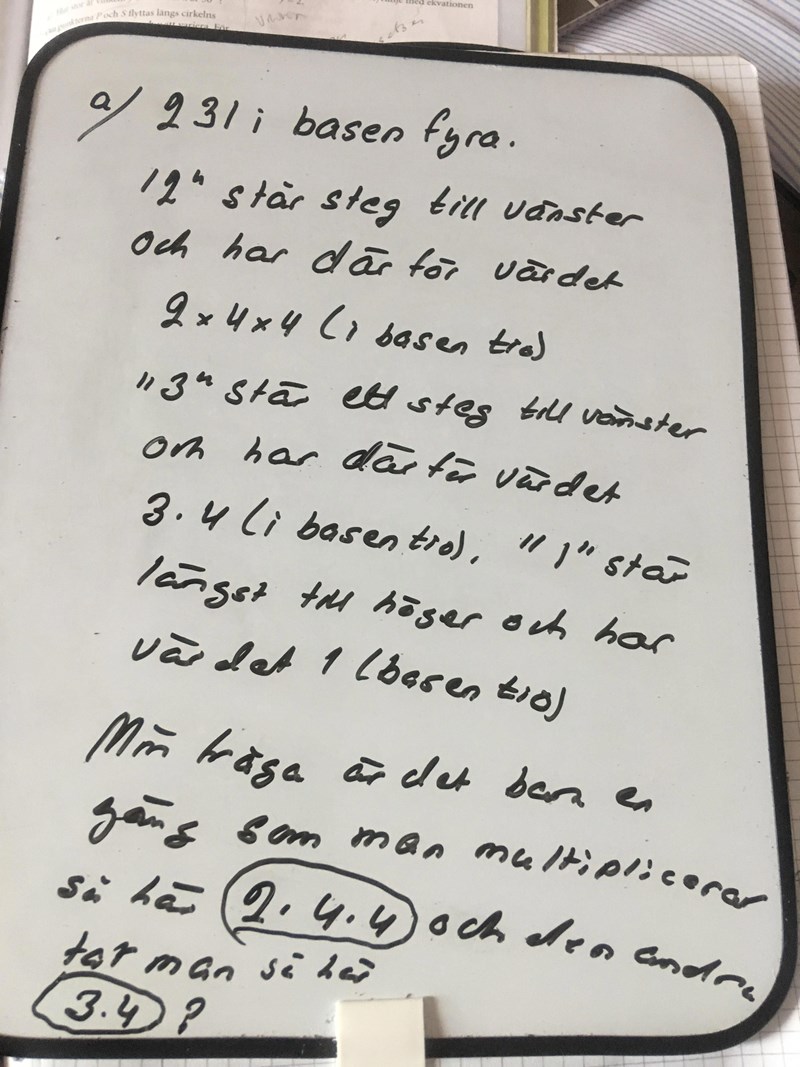 a/ 231 i basen fyra.
"2" står steg till vänster
och har därför värdet
2 x 4 x 4 (i basen tio)
"3" står ett steg till vänster
och har därför värdet
3·4 (i basen tio), "1" står
längst till höger och har
värdet 1 (basen tio)
Min fråga är det bara en
gång som man multiplicerar
så här 2·4·4 och den andra
tar man så här
3·4 ?